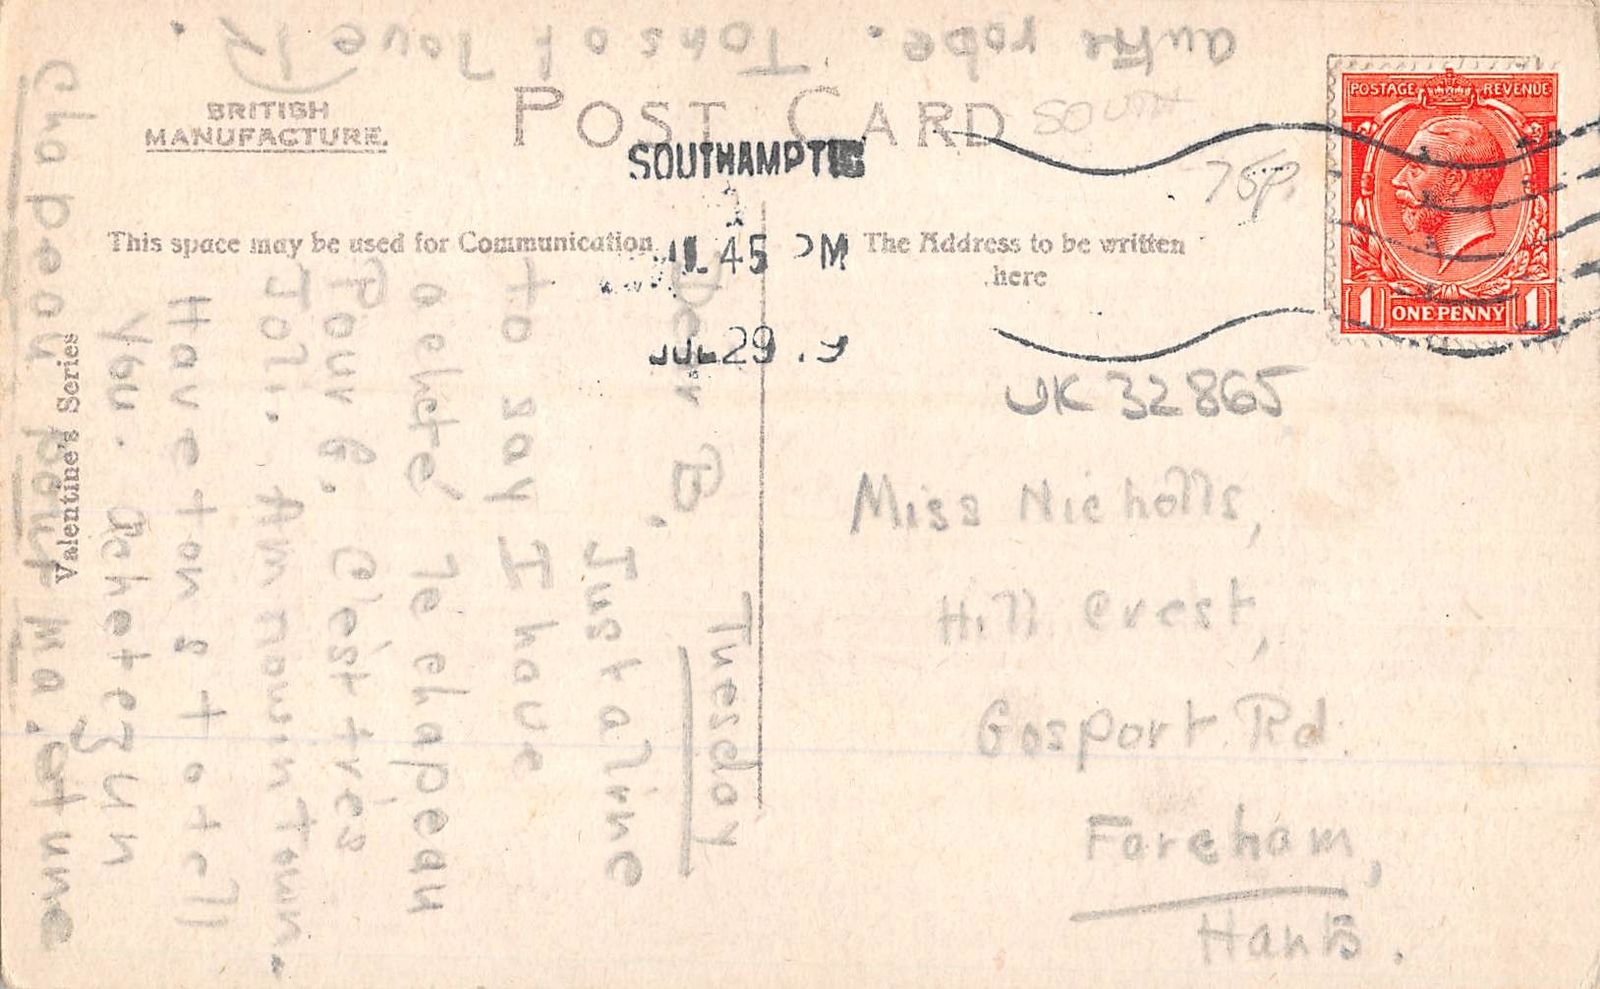 BRITISH
MANUFACTURE.
POST CARD
SOUTH
75p.
POSTAGE REVENUE
1 ONE PENNY 1
SOUTHAMPT
45 PM
JUL 29 .9
This space may be used for Communication
The Address to be written
here
Valentine's Series
UK 32865
Miss Nicholls,
Hill Crest,
Gosport Rd.
Fareham,
Hants.
Tuesday
Dear B.
Just a line
to say I have
acheté le chapeau
pour b. C'est très
Joli. Am now in Town.
Have tons to tell
you. Achetez un
chapeau pour ma. et une
autre robe. Tons of love